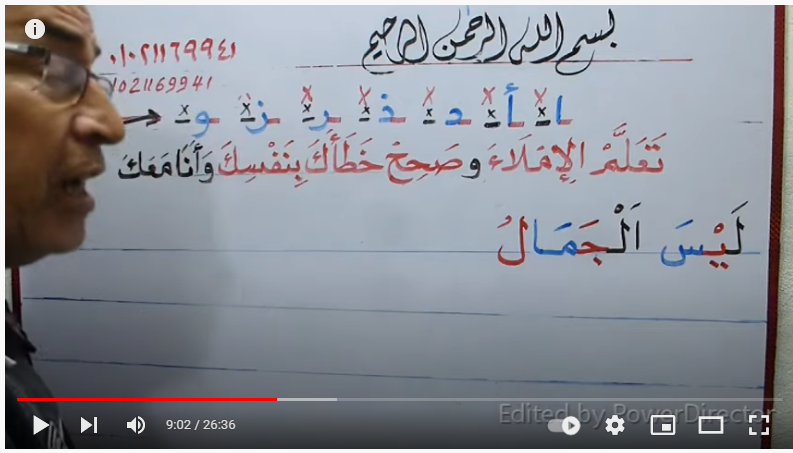 بسم الله الرحمن الرحيم
٠١٠٢١١٦٩٩٤١
01021169941
ا أ د ذ ر ز و
تَعَلَّمْ الإِمْلَاءَ وَصَحِحْ خَطَأَكَ بِنَفْسِكَ وَأَنَا مَعَكَ
لَيْسَ اَلْجَمَالُ
Edited by PowerDirector
9:02 / 26:36